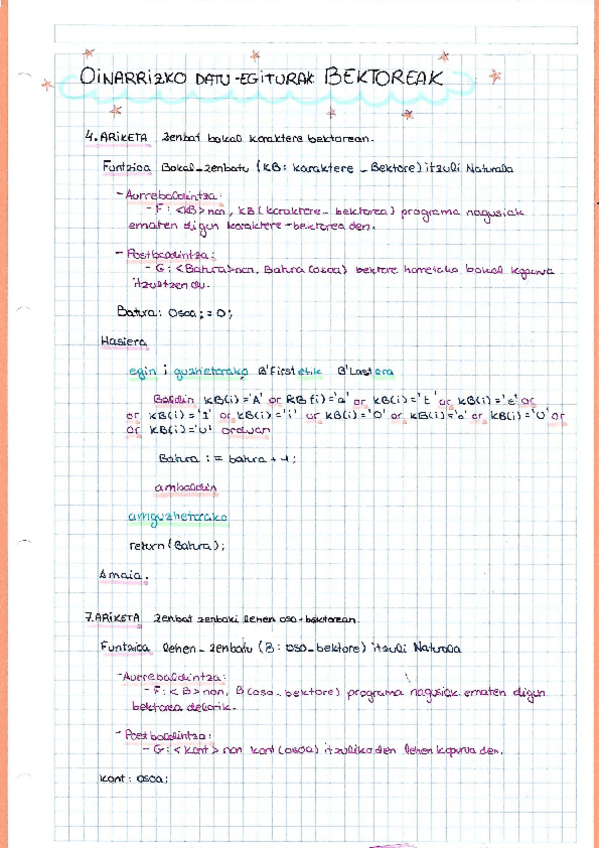 OINARRIZKO DATU-EGITURAK BEKTOREAK
4. ARIKETA zenbat bokal karaktere bektorean.
Funtzioa Bokal_zenbatu (KB: karaktere_Bektore) itzuli Naturala
- Aurrebaldintza:
- F: <KB> non, KB (karaktere_bektorea) programa nagusiak
ematen digun karaktere-bektorea den.
- Postbaldintza:
- G: <Batura> non, Batura (osoa) bektore horretako bokal kopurua
itzultzen du.
Batura: Osoa; = 0;
Hasiera
egin i guztietarako B'First etik B'Last era
Baldin KB(i)='A' or KB(i)='a' or KB(i)='E' or KB(i)='e' or
or KB(i)='I' or KB(i)='i' or KB(i)='O' or KB(i)='o' or KB(i)='U' or
or KB(i)='u' orduan
Batura := batura + 1;
ambaldin
amguztietarako
return (Batura);
Amaia.
7. ARIKETA zenbat zenbaki lehen oso-bektorean.
Funtzioa lehen_zenbatu (B: oso_bektore) itzuli Naturala
- Aurrebaldintza:
- F: <B> non, B (oso_bektore) programa nagusiak ematen digun
bektorea delarik.
- Postbaldintza:
- G: <kont> non kont (osoa) itzuliko den lehen kopurua den.
kont: osoa;